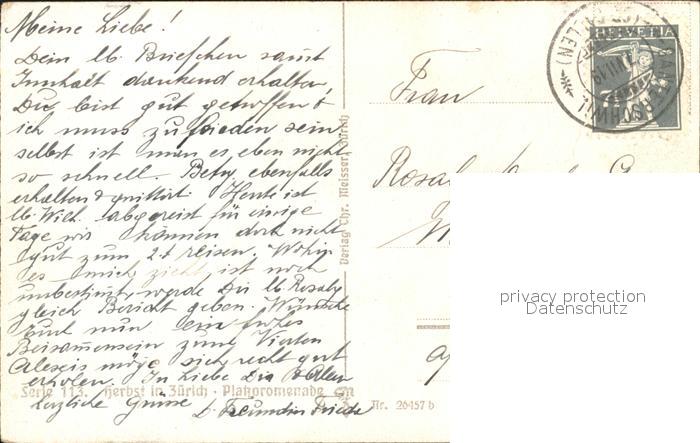 Meine Liebe!
Dein lb. Briefchen samt
Innhalt dankend erhalten,
Du bist gut getroffen &
ich muss zufrieden sein
selbst ist man es eben nicht
so schnell. Betry ebenfalls
erhalten & quittirt. Heute ist
lb. Wilh. abgereist für einige
Tage wir können doch nicht
gut zum 2t reisen. Wohin
es mich zieht, ist noch
unbestimt, werde Dir lb. Rosaly
gleich Bericht geben. Wünsche
Euch nun ein frohes
Beisammensein zum Vierten
Alexis möge sich recht gut
erholen. In Liebe Dir & Allen
herzliche Grüsse
d. Freundin Frieda
Serie 113. Herbst in Zürich - Platzpromenade
Nr. 26457 b
Verlag Chr. Meisser, Zürich
Frau
Rosal
HELVETIA
privacy protection
Datenschutz